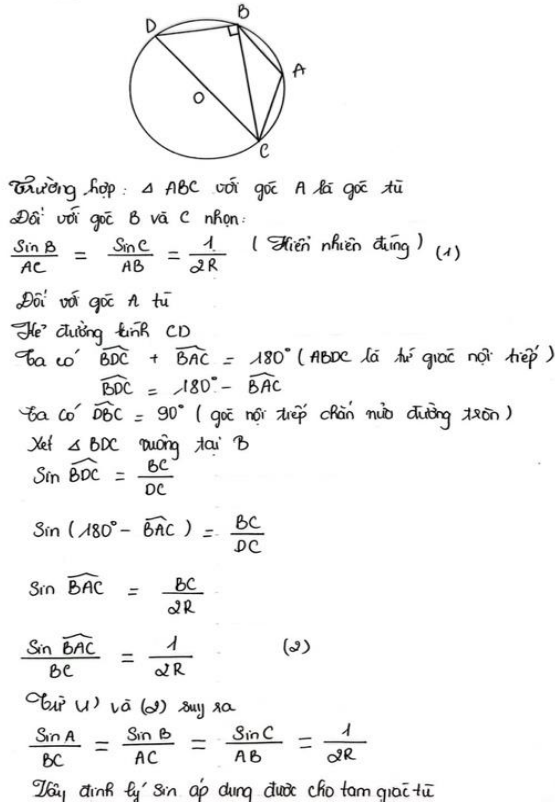 D
B
A
O
C
Trường hợp: Δ ABC với góc A là góc tù
Đối với góc B và C nhọn:
Sin B / AC = Sin C / AB = 1 / 2R (Hiển nhiên đúng) (1)
Đối với góc A tù
Kẻ đường kính CD
Ta có BDC + BAC = 180° (ABDC là tứ giác nội tiếp)
BDC = 180° - BAC
Ta có DBC = 90° (góc nội tiếp chắn nửa đường tròn)
Xét Δ BDC vuông tại B
Sin BDC = BC / DC
Sin (180° - BAC) = BC / DC
Sin BAC = BC / 2R
Sin BAC / BC = 1 / 2R (2)
Từ (1) và (2) suy ra
Sin A / BC = Sin B / AC = Sin C / AB = 1 / 2R
Vậy định lý Sin áp dụng được cho tam giác tù